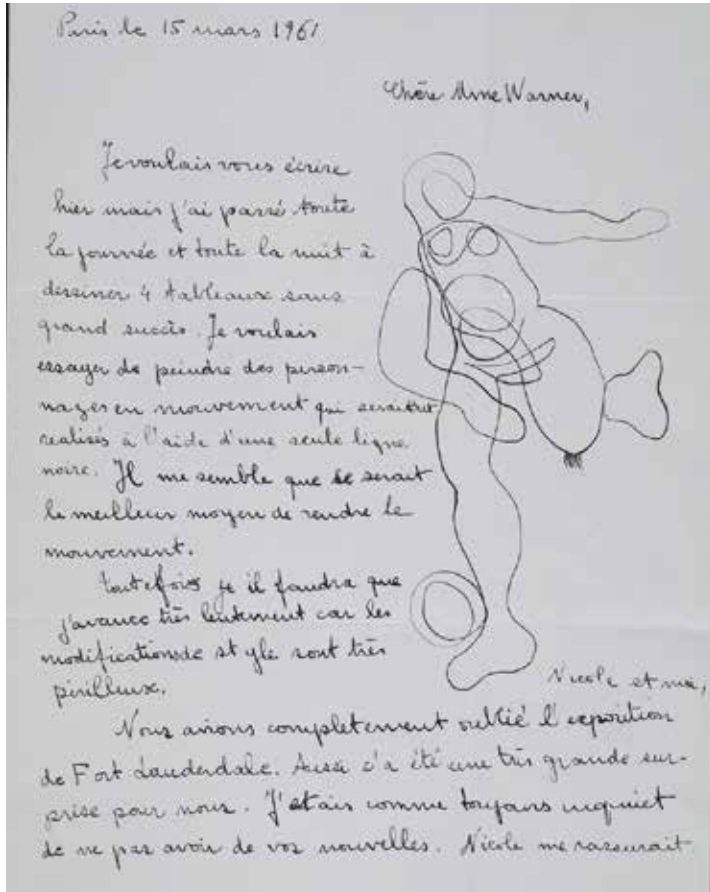 Paris le 15 mars 1961
Chère Mme Warner,
Je voulais vous écrire
hier mais j'ai passé toute
la journée et toute la nuit à
dessiner 4 tableaux sans
grand succès. Je voulais
essayer de peindre des person-
nages en mouvement qui seraient
realisés à l'aide d'une seule ligne
noire. Il me semble que ce serait
le meilleur moyen de rendre le
mouvement.
toutefois je il faudra que
j'avance très lentement car les
modifications de style sont très
périlleux.
Nicole et moi,
Nous avions completement oublié l'exposition
de Fort Lauderdale. Aussi c'a été une très grande sur-
prise pour nous. J'etais comme toujours inquiet
de ne pas avoir de vos nouvelles. Nicole me rassurait